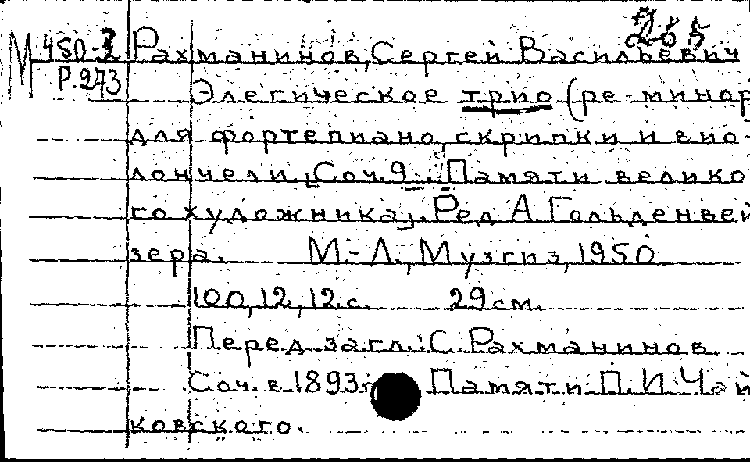 265
М 450-3 Рахманинов, Сергей Васильевич
Р.273
Элегическое трио (ре-минор
для фортепиано, скрипки и вио-
лончели. [Соч. 9. Памяти велико
го художника]. Ред А Гольденвей
зера. М.-Л., Музгиз, 1950
100, 12, 12 с. 29 см.
Перед загл.: С. Рахманинов
Соч. в 1893 Памяти П. И. Чай
ковского.